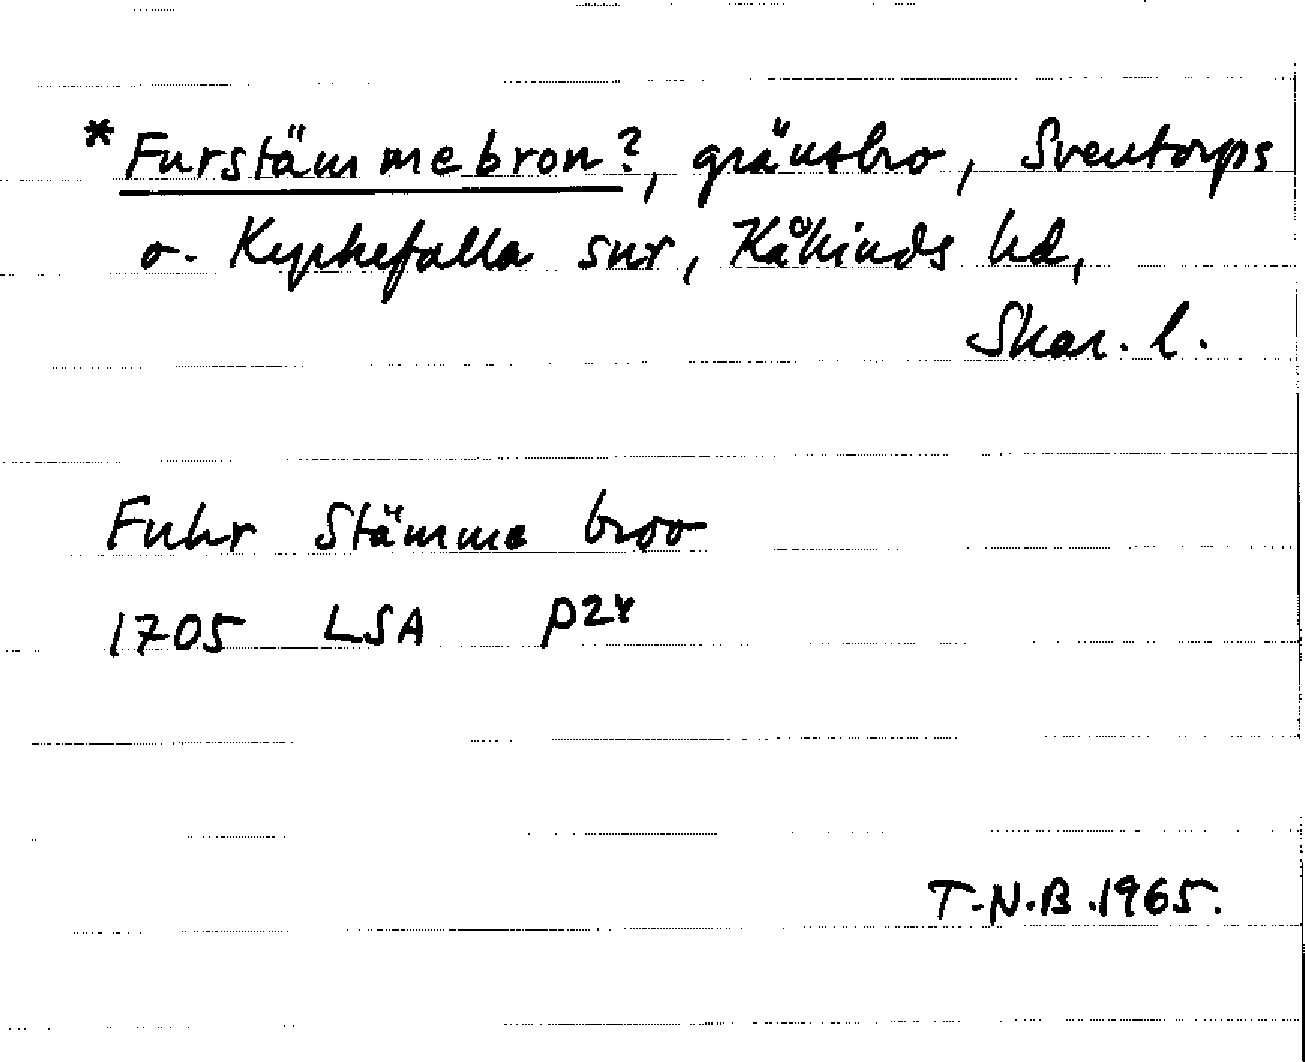 *Furstämmebron?, gränsbro, Sventorps
o. Kyrkefalla snr, Kåkinds hd,
Skar. l.
Fuhr Stämme broo
1705 LSA P24
T-N.B.1965.